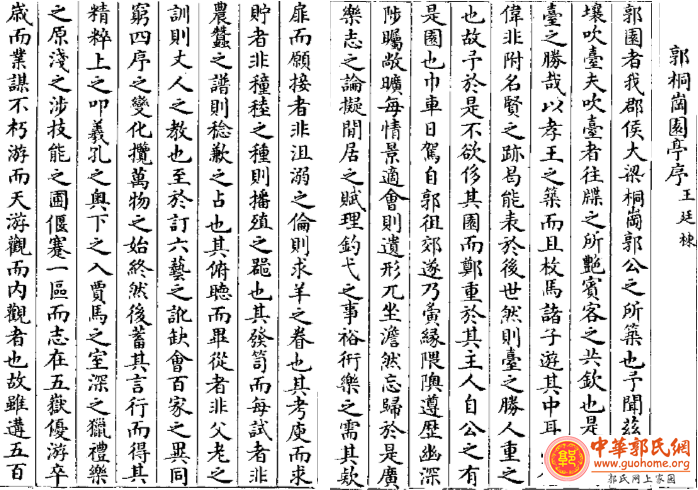 郭桐崗園亭序
王廷棟
郭園者我郡侯大梁桐崗郭公之所築也予聞茲
壤吹臺夫吹臺者往牒之所艷賓客之共欽也是
臺之勝哉以孝王之築而且枚馬諸子遊其中耳
偉非附名賢之跡曷能表於後世然則臺之勝人重之
也故予於是不欲侈其園而鄭重於其主人自公之有
是園也巾車日駕自郭徂郊遂乃夤緣隈隩遵歷幽深
陟矚敞曠每情景適會則遺形兀坐澹然忘歸於是廣
樂志之論擬閒居之賦理釣弋之事裕衎樂之需其欵
扉而願接者非沮溺之倫則求羊之眷也其考庾而求
貯者非穜稑之種則播殖之跪也其發笥而每試者非
農蠶之譜則稔歉之占也其俯聽而畢從者非父老之
訓則丈人之教也至於訂六藝之訛缺會百家之異同
窮四序之變化攬萬物之始終然後蓄其言行而得其
精粹上之叩羲孔之奥下之入賈馬之室深之獵禮樂
之原淺之涉技能之圃偃蹇一區而志在五嶽優游卒
歲而業謀不朽游而天游觀而内觀者也故雖遘五百
中華郭氏網
www.guohome.org
郭氏网上家园